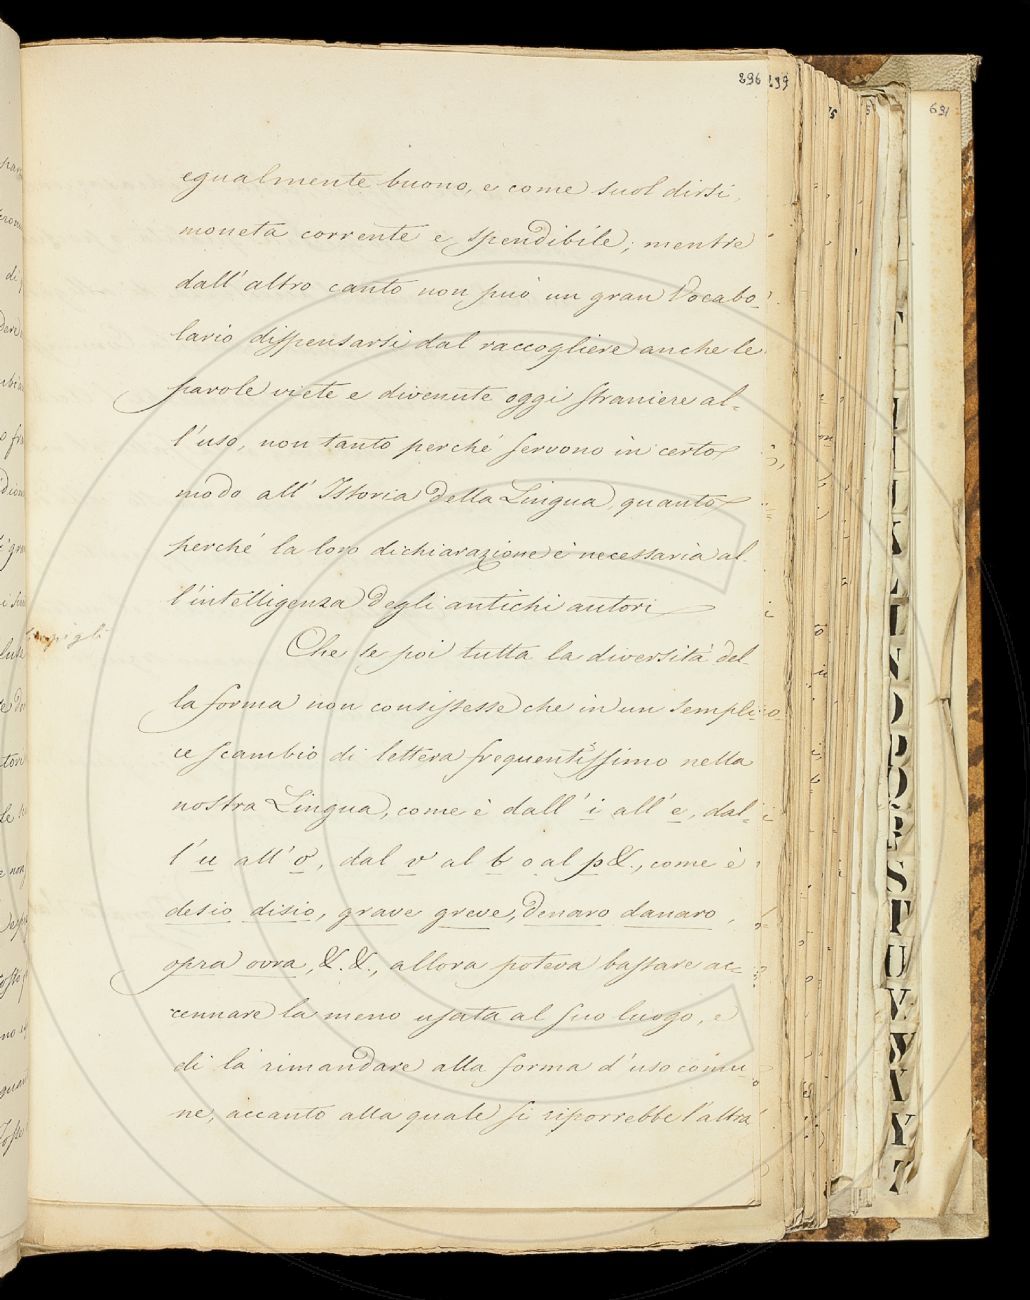 296
egualmente buono, e come suol dirsi,
moneta corrente e spendibile; mentre
dall'altro canto non può un gran Vocabo-
lario dispensarsi dal raccogliere anche le
parole viete e divenute oggi straniere al=
l'uso, non tanto perché servono in certo
modo all'Istoria della Lingua, quanto
perché la loro dichiarazione è necessaria al-
l'intelligenza degli antichi autori
Che se poi tutta la diversità del-
la forma non consistesse che in un sempli-
ce scambio di lettera frequentissimo nella
nostra Lingua, come è dall'i all'e, dal=
l'u all'o, dal v al b o al p &., come è
desio disio, grave greve, denaro danaro,
opra ovra, &. &., allora poteva bastare ac=
cennare la meno usata al suo luogo, e
di là rimandare alla forma d'uso comu
ne, accanto alla quale si riporrebbe l'altra
631
N
O
P
Q
R
S
T
U
V
X
Y